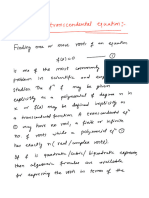 transcendental equation:-
Finding one or more roots of an equation
f(x)=0 ①
is one of the most commonly
problems in scientific and
studies. The fⁿ f may be given
explicitly as a polynomial of degree n in
x or f(x) may be defined implicitly as
a transcendental function. A transcendental eqⁿ
① may have no root, a finite or infinite
no of roots while a polynomial eqⁿ ①
has exactly n (real/complex roots).
If f is quadratic, cubic, biquadratic expression
then algebraic formulae are available
for expressing the roots in terms of the